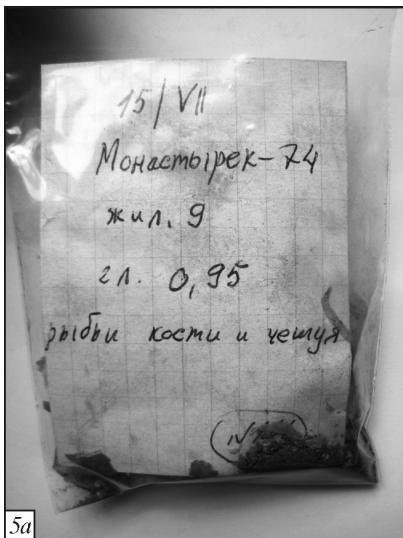 15/VII
Монастырек-74
жил. 9
гл. 0,95
рыбьи кости и чешуя
5а